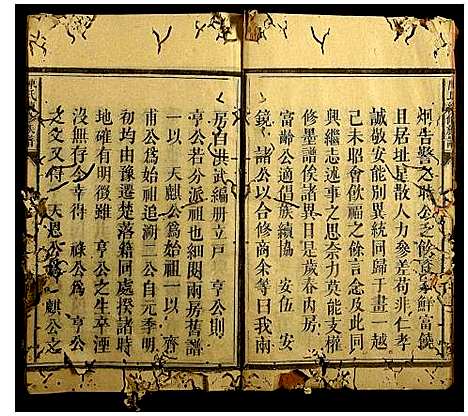 炯告警之時公之餘食未鮮富饒
且居址星散人力參差苟非仁孝
誠敬安能別異統同歸于畫一越
己未昭會飲福之餘言念及此同
興繼志述事之思奈力莫能支權
修墨譜俟諸異日是歲春内房
富齡公適倡族續協 安伍 安
鏡 諸公以合修商余等曰我兩
房自洪武編册立戶 亨公則
亨公若分派祖也細閱兩房舊譜
一以 天麒公爲始祖一以 齊
甫公爲始祖追溯二公自元季明
初均由豫遷楚落籍同處揆諸時
地確有明徵雖 亨公之生卒湮
沒無存今幸得 祿公爲 亨公
之文又得 天恩公爲 麒公之